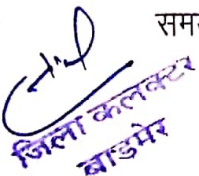 सम
जिला कलक्टर
बाडमेर